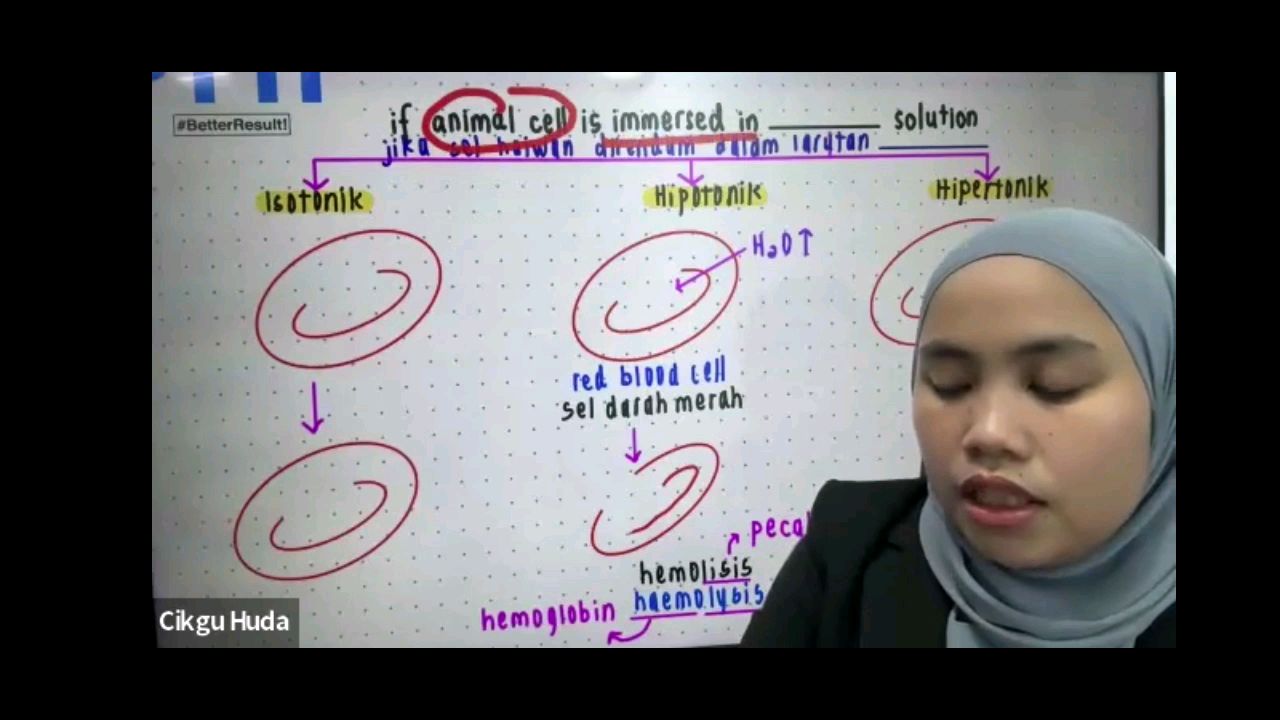 #BetterResult!
if animal cell is immersed in ________ solution
jika sel haiwan direndam dalam larutan ________
Isotonik
Hipotonik
Hipertonik
H₂O↑
red blood cell
sel darah merah
hemolisis
haemolysis
hemoglobin
Cikgu Huda